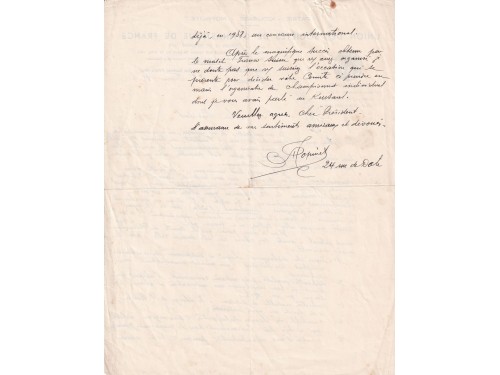 déjà, en 1937, un concours international.
Après le magnifique succès obtenu par
le match France que vous avez organisé, je
ne doute pas que vous l'occasion qui se
présente pour décider votre Comité à prendre en
main l'organisation du championnat individuel
dont je vous avais parlé
Veuillez agréer Cher Président
l'assurance de mes sentiments amicaux et dévoués.
24 rue de